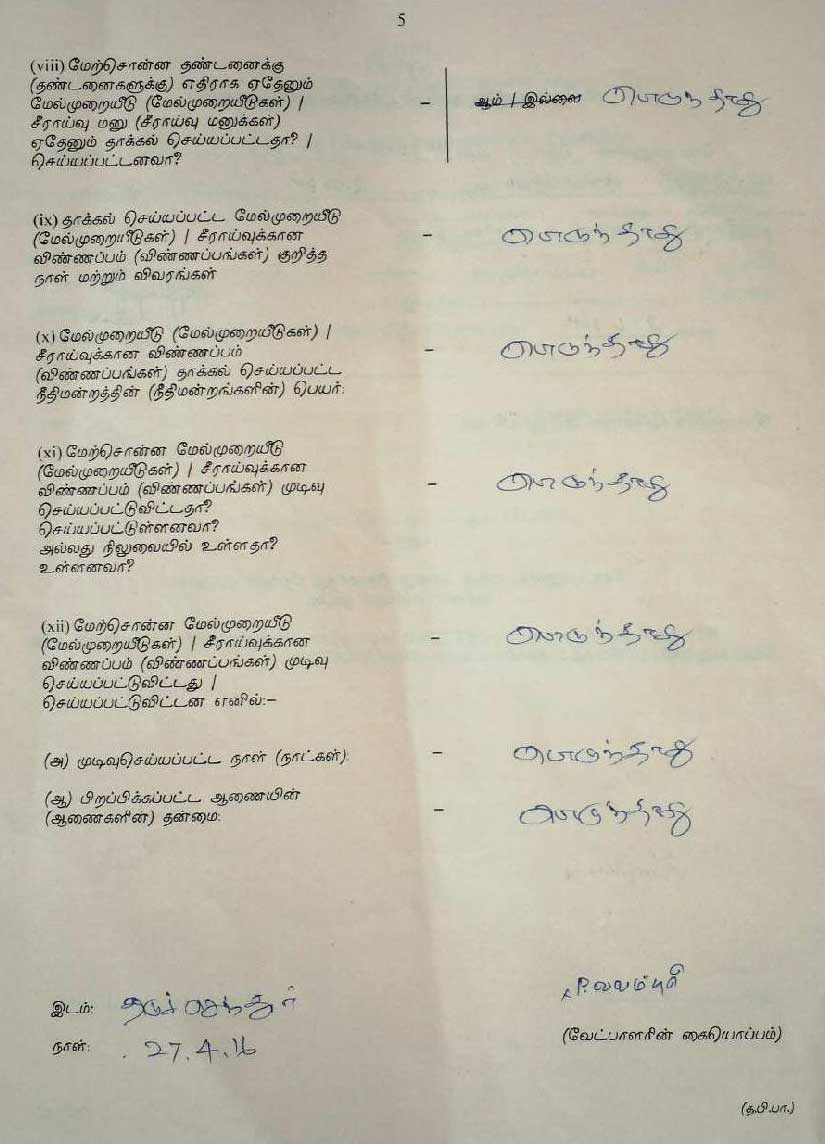 5
(viii) மேற்சொன்ன தண்டனைக்கு
(தண்டனைகளுக்கு) எதிராக ஏதேனும்
மேல்முறையீடு (மேல்முறையீடுகள்) | – ஆம் / இல்லை பொருந்தாது
சீராய்வு மனு (சீராய்வு மனுக்கள்)
ஏதேனும் தாக்கல் செய்யப்பட்டதா? |
செய்யப்பட்டனவா?
(ix) தாக்கல் செய்யப்பட்ட மேல்முறையீடு
(மேல்முறையீடுகள்) | சீராய்வுக்கான – பொருந்தாது
விண்ணப்பம் (விண்ணப்பங்கள்) குறித்த
நாள் மற்றும் விவரங்கள்
(x) மேல்முறையீடு (மேல்முறையீடுகள்) |
சீராய்வுக்கான விண்ணப்பம் – பொருந்தாது
(விண்ணப்பங்கள்) தாக்கல் செய்யப்பட்ட
நீதிமன்றத்தின் (நீதிமன்றங்களின்) பெயர்:
(xi) மேற்சொன்ன மேல்முறையீடு
(மேல்முறையீடுகள்) | சீராய்வுக்கான
விண்ணப்பம் (விண்ணப்பங்கள்) முடிவு – பொருந்தாது
செய்யப்பட்டுவிட்டதா?
செய்யப்பட்டுள்ளனவா?
அல்லது நிலுவையில் உள்ளதா?
உள்ளனவா?
(xii) மேற்சொன்ன மேல்முறையீடு
(மேல்முறையீடுகள்) | சீராய்வுக்கான – பொருந்தாது
விண்ணப்பம் (விண்ணப்பங்கள்) முடிவு
செய்யப்பட்டுவிட்டது |
செய்யப்பட்டுவிட்டன எனில்:–
(அ) முடிவுசெய்யப்பட்ட நாள் (நாட்கள்): – பொருந்தாது
(ஆ) பிறப்பிக்கப்பட்ட ஆணையின்
(ஆணைகளின்) தன்மை: – பொருந்தாது
P.வலம்புரி
இடம்: திருச்செந்தூர்
(வேட்பாளரின் கையொப்பம்)
நாள்: 27.4.16
(த.பி.பா.)